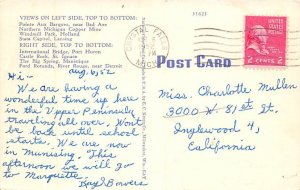 VIEWS ON LEFT SIDE, TOP TO BOTTOM:
Pointe Aux Barques, near Bad Axe
Northern Michigan Copper Mine
Windmill Park, Holland
State Capitol, Lansing
RIGHT SIDE, TOP TO BOTTOM:
International Bridge, Port Huron
Castle Rock, St. Ignace
The Big Spring, Manistique
Ford Rotunda, River Rouge, near Detroit
Aug. 6, 52
Hi-
We are having a
wonderful time up here
in the Upper Peninsula
traveling all over. Won't
be back until school
starts. We are now
in Munising. This
afternoon we will go
to Marquette.
Bowers
51625
POST CARD
MICH
2 CENTS 2
Miss. Charlotte Mullen
3000 W 81st St.
Inglewood 4,
California